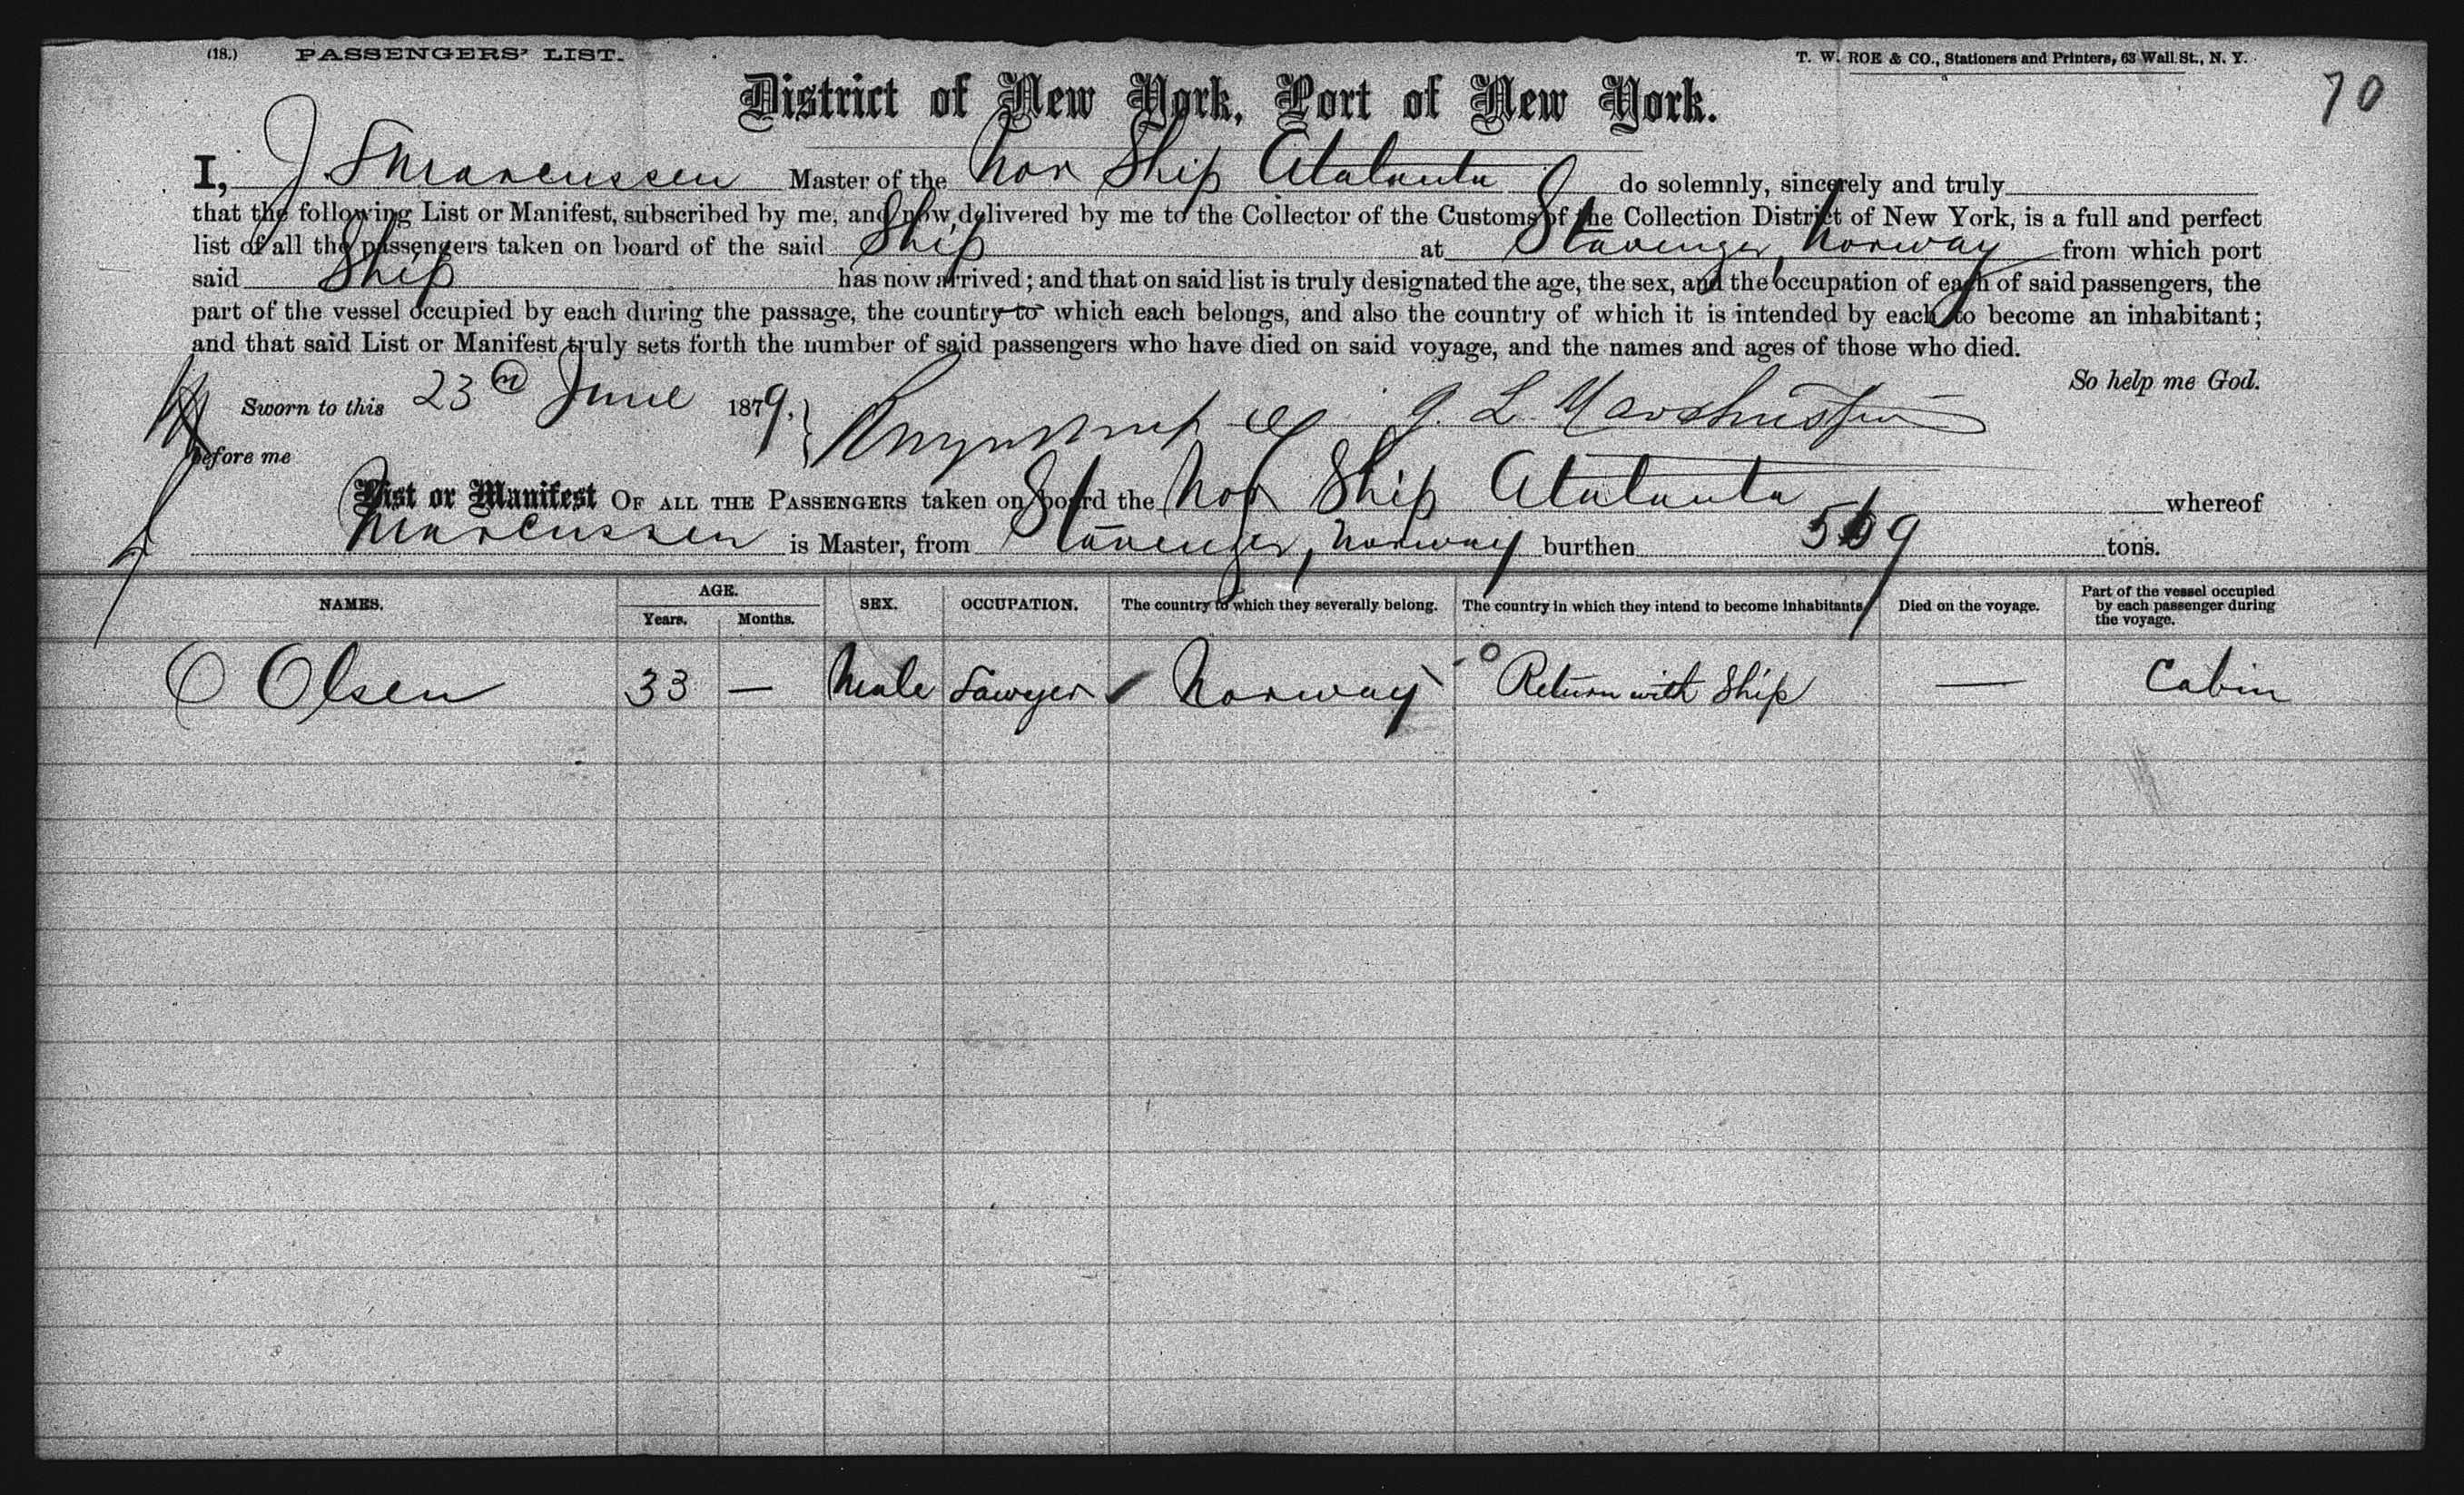 (18.) PASSENGERS' LIST. T. W. ROE & CO., Stationers and Printers, 63 Wall St., N. Y.
70
District of New York, Port of New York.
I, J S Marcussen Master of the Nor Ship Atalanta do solemnly, sincerely and truly
that the following List or Manifest, subscribed by me, and now delivered by me to the Collector of the Customs of the Collection District of New York, is a full and perfect
list of all the passengers taken on board of the said Ship at Stavenger, Norway from which port
said Ship has now arrived; and that on said list is truly designated the age, the sex, and the occupation of each of said passengers, the
part of the vessel occupied by each during the passage, the country to which each belongs, and also the country of which it is intended by each to become an inhabitant;
and that said List or Manifest truly sets forth the number of said passengers who have died on said voyage, and the names and ages of those who died.
So help me God.
Sworn to this 23rd June 1879.
before me
List or Manifest OF ALL THE PASSENGERS taken on board the Nor Ship Atalanta whereof
Marcussen is Master, from Stavenger, Norway burthen tons.
NAMES. AGE. Years. Months. SEX. OCCUPATION. The country to which they severally belong. The country in which they intend to become inhabitants. Died on the voyage. Part of the vessel occupied by each passenger during the voyage.
O Olsen 33 — Male Sawyer Norway Return with Ship — Cabin